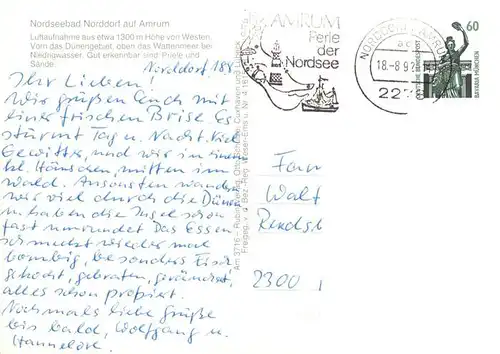 Nordseebad Norddorf auf Amrum
Luftaufnahme aus etwa 1300 m Höhe von Westen.
Vorn das Dünengebiet, oben das Wattenmeer bei
Niedrigwasser. Gut erkennbar sind Priele und
Sände.
Norddorf 18.8.
Ihr Lieben!
Wir grüßen Euch mit
einer frischen Brise Es
stürmt Tag u. Nacht. Viel
Gewitter, und wir in einem
kl. Häuschen, mitten im
Wald. Ansonsten wandern
wir viel durch die Dünen
u. haben die Insel schon
fast umrundet Das Essen
schmeckt wieder mal
bombig, besonders Fisch
gekocht, gebraten, geräuchert,
alles schon probiert.
Nochmals liebe Grüße
bis bald, Wolfgang u.
Hannelore.
AMRUM
Perle
der
Nordsee
NORDDORF, AMRUM
18.-8.92
22
60
DEUTSCHE BUNDESPOST
BAVARIA MÜNCHEN
Fam
Walt
Rendsb
2300